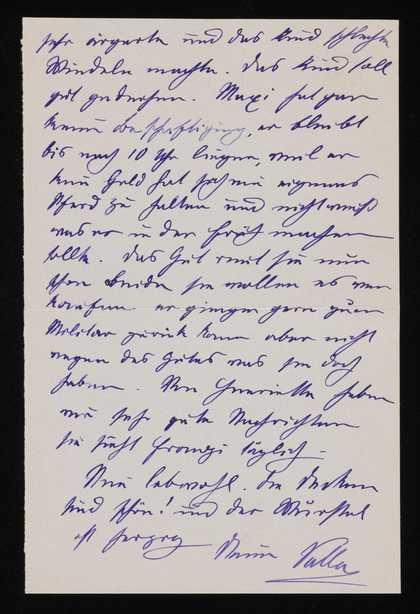 sehr ärgerte und das Kind schlechte
Windeln machte. Das Kind soll
gut gedeihen. Maxi hat gar
keine Beschäftigung, er bleibt
bis nach 10 Uhr liegen, weil er
kein Geld hat sich ein eigenes
Pferd zu halten und nicht weiß
was er in der Früh machen
sollte. Das Gut sind sie nun
schon beide sie wollen es ver
kaufen er ginge gern zum
Militär zurück kann aber nicht
wegen des Gutes was sie doch
haben. Von Henriette haben
wir sehr gute Nachrichten
sie sieht Franzi täglich –
Nun lebewohl. Die Decken
sind schön! und der Wurstel
ist herzig
Deine Valla